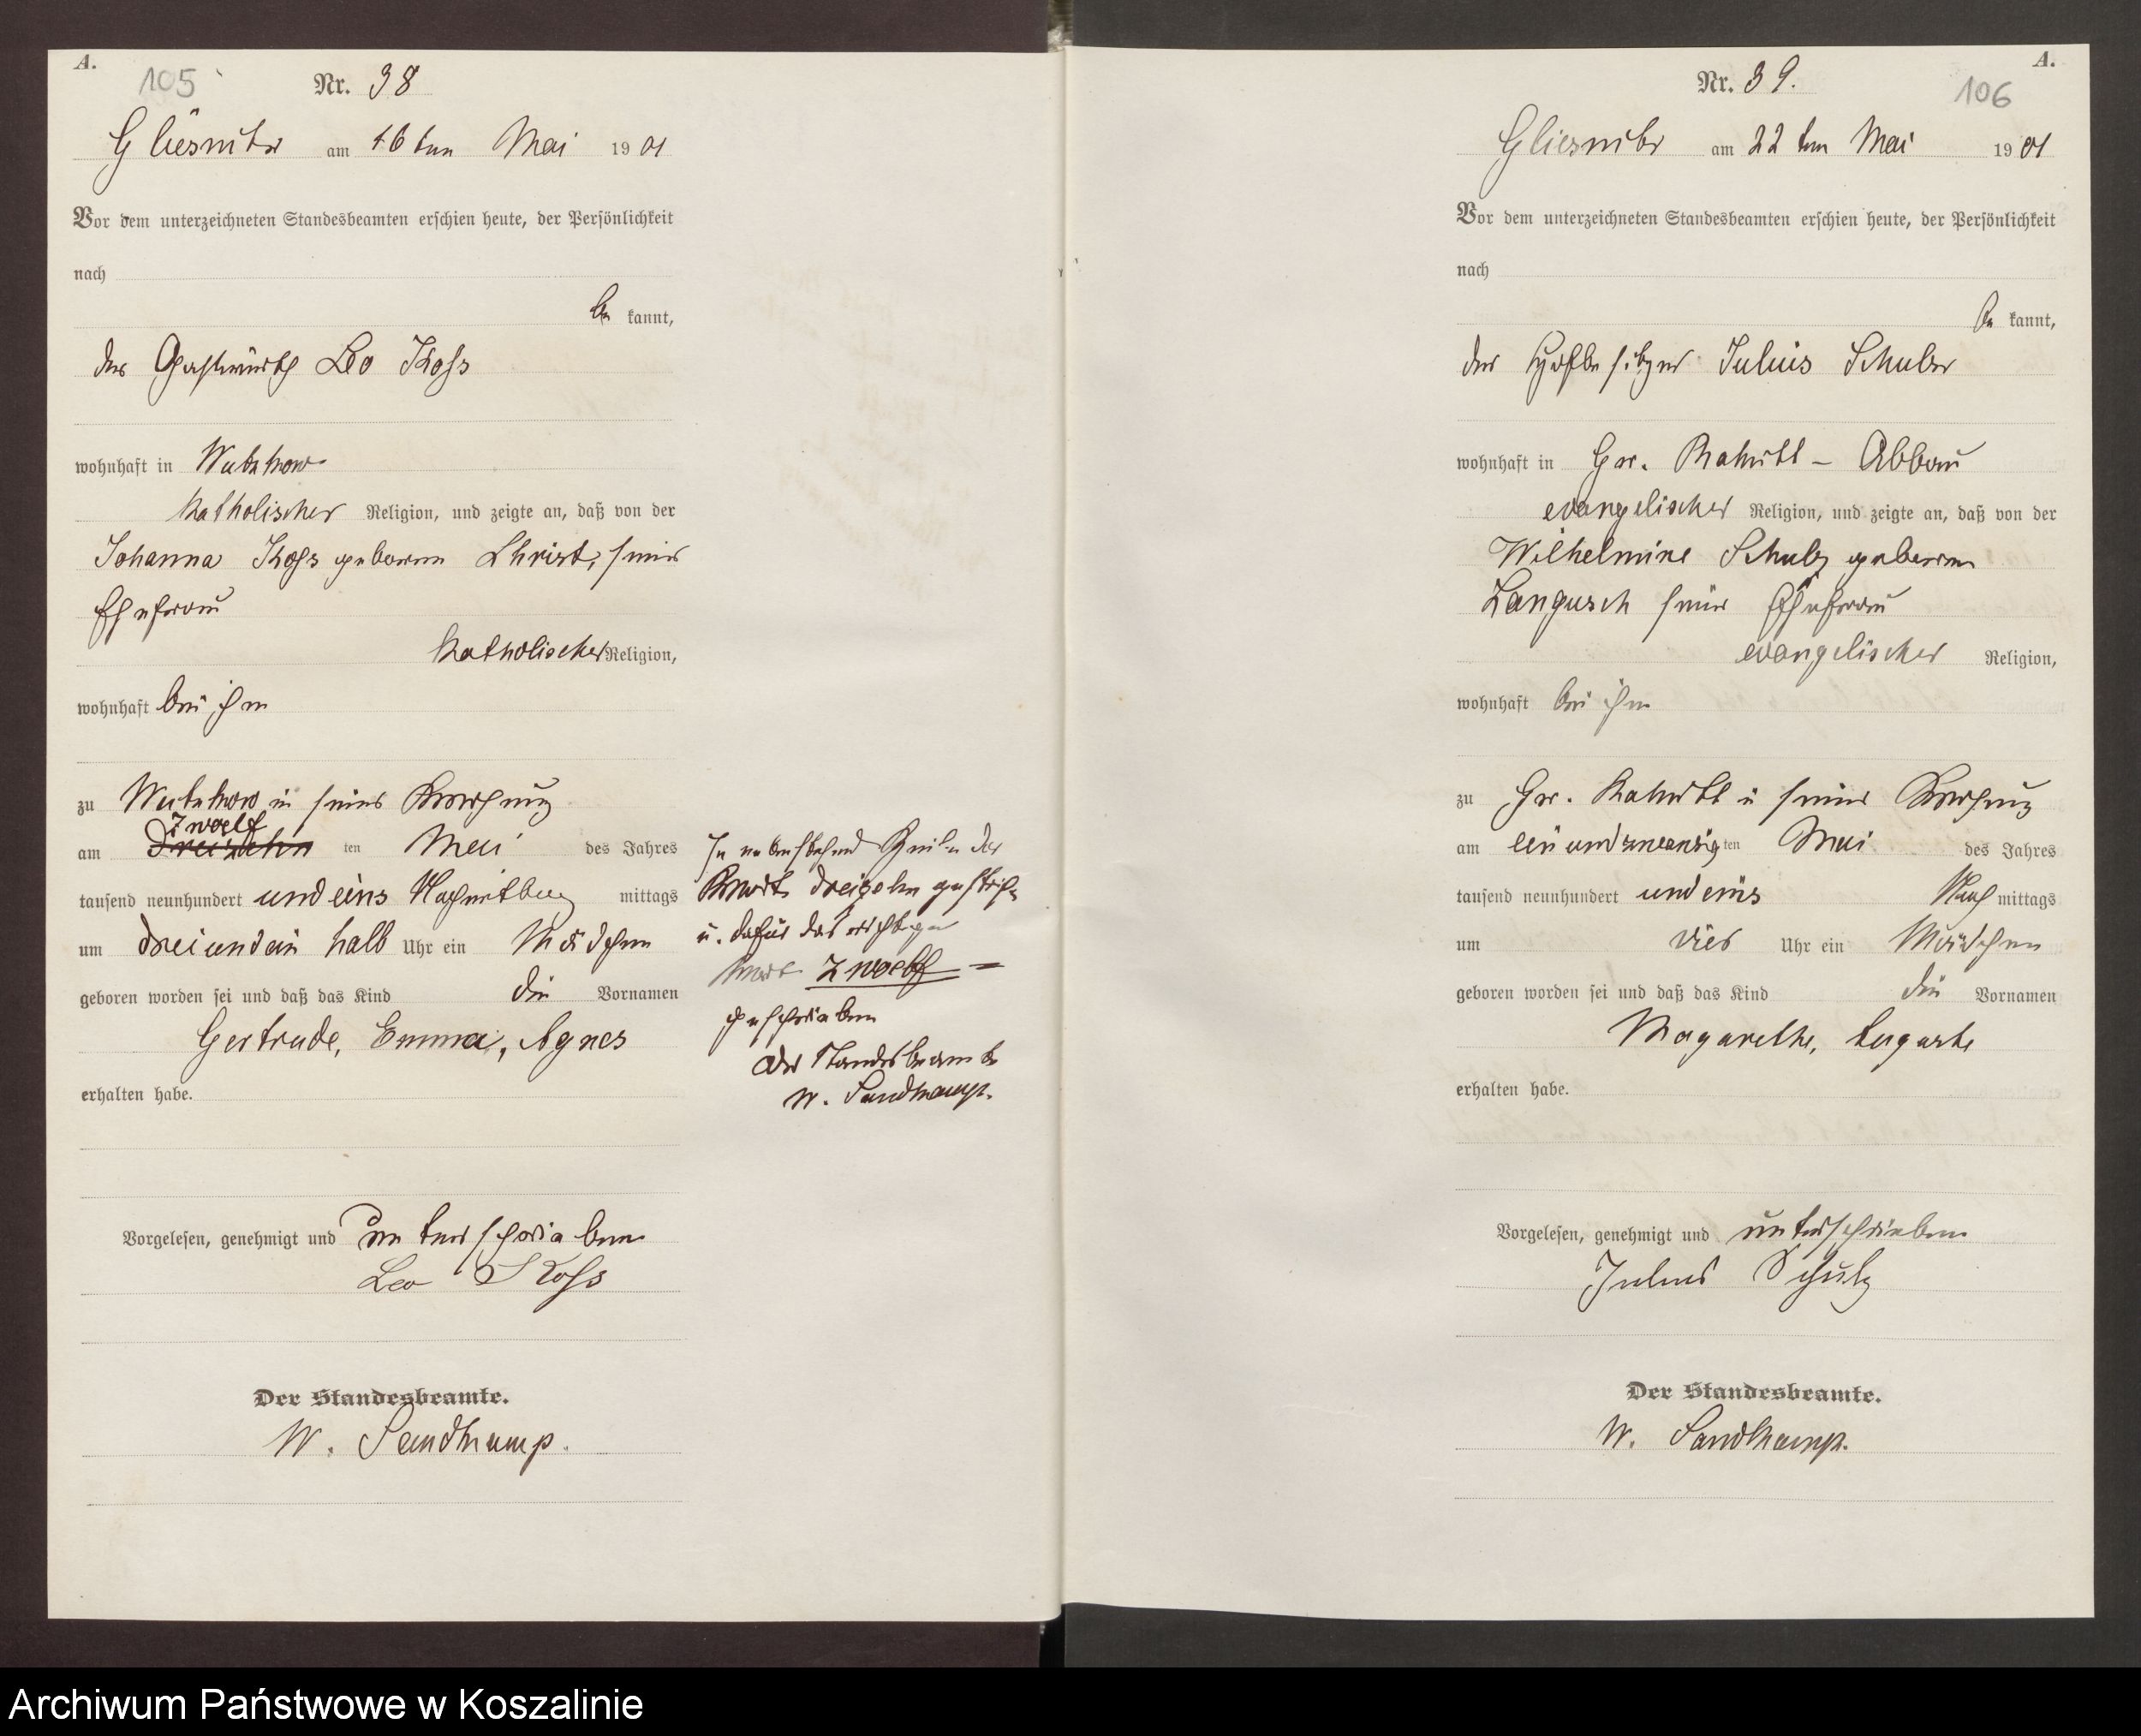 A.
105
Nr. 38
Gliesnitz am 16 ten Mai 1901
Vor dem unterzeichneten Standesbeamten erschien heute, der Persönlichkeit
nach
be kannt,
der Gastwirth Leo Koss
wohnhaft in Wutzkow
katholischer Religion, und zeigte an, daß von der
Johanna Koss geborenen Christ, seiner
Ehefrau
katholischer Religion,
wohnhaft bei ihm
zu Wutzkow in seiner Wohnung
zwoelf
am dreizehn ten Mai des Jahres
tausend neunhundert und eins Nachmittag mittags
um drei und ein halb Uhr ein Mädchen
geboren worden sei und daß das Kind die Vornamen
Gertrude, Emma, Agnes
erhalten habe.
In nebenstehend Zeile das
Wort dreizehn gestrichen
u. dafür das richtige
Wort zwoelf
geschrieben
Der Standesbeamte
W. Sandkamp.
Vorgelesen, genehmigt und unterschrieben
Leo Koss
Der Standesbeamte.
W. Sandkamp.
A.
106
Nr. 39.
Gliesnitz am 22 ten Mai 1901
Vor dem unterzeichneten Standesbeamten erschien heute, der Persönlichkeit
nach
be kannt,
der Hofbesitzer Julius Schulz
wohnhaft in Gr. Rakitt - Abbau
evangelischer Religion, und zeigte an, daß von der
Wilhelmine Schulz geborenen
Langusch seiner Ehefrau
evangelischer Religion,
wohnhaft bei ihm
zu Gr. Rakitt in seiner Wohnung
am ein und zwanzig ten Mai des Jahres
tausend neunhundert und eins Nach mittags
um vier Uhr ein Mädchen
geboren worden sei und daß das Kind die Vornamen
Magarethe,
erhalten habe.
Vorgelesen, genehmigt und unterschrieben
Julius Schulz
Der Standesbeamte.
W. Sandkamp.
Archiwum Państwowe w Koszalinie